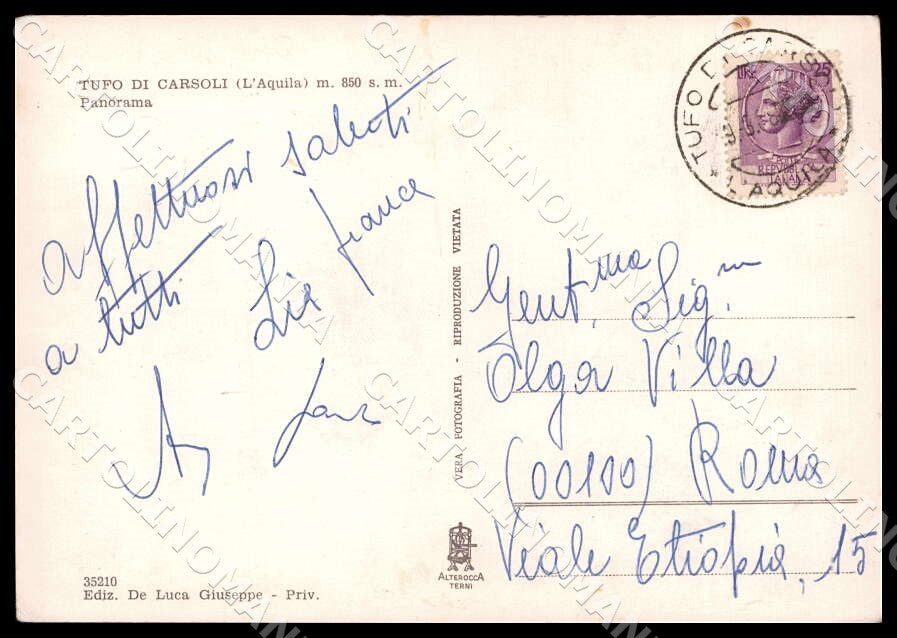 TUFO DI CARSOLI (L'Aquila) m. 850 s. m.
Panorama
affettuosi saluti
a tutti Lia Franca
35210
Ediz. De Luca Giuseppe - Priv.
VERA FOTOGRAFIA - RIPRODUZIONE VIETATA
ALTEROCCA
TERNI
TUFO DI CARSOLI
* L'AQUILA *
LIRE 25
REPUBBLICA
ITALIANA
Gent.ma Sig.na
Olga Villa
(00100) Roma
Viale Etiopia, 15
CARTOLINOMANIA